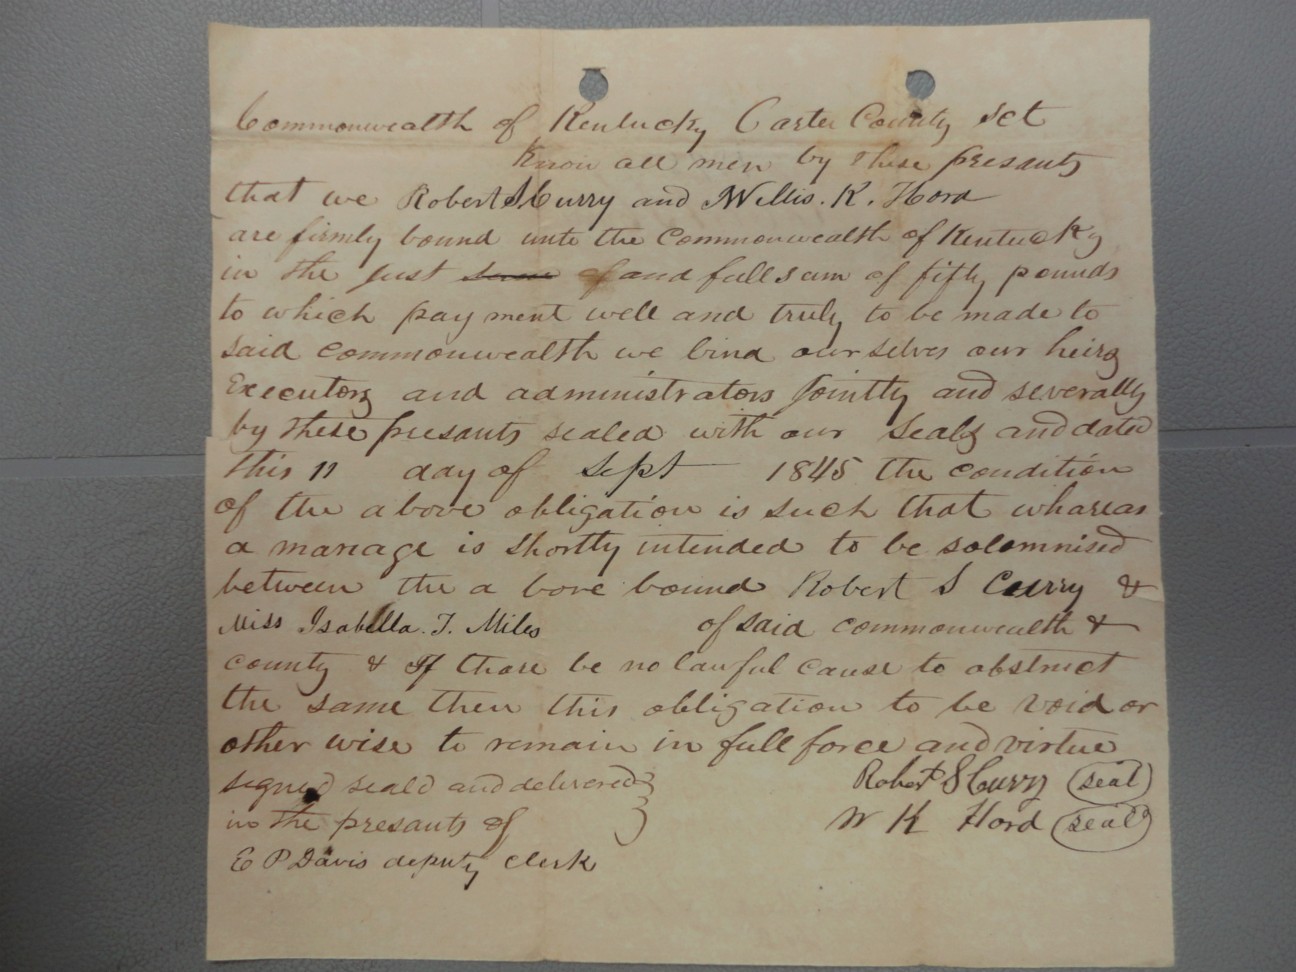 Commonwealth of Kentucky Carter County Sct
Know all men by these presants
that we Robert S Curry and Willis. K. Hord
are firmly bound unto the Commonwealth of Kentucky
in the just sum of and full sum of fifty pounds
to which payment well and truly to be made to
said commonwealth we bind our selves our heirs
Executors and administrators Jointly and severally
by these presants sealed with our Seals and dated
this 11 day of Sept 1845 the condition
of the above obligation is such that whareas
a mariage is shortly intended to be solomnised
between the a bove bound Robert S Curry &
Miss Isabella. T. Miles of said commonwealth &
county & If thare be no lawful cause to obstruct
the same then this obligation to be void or
other wise to remain in full force and virtue
signed seald and delivered Robert S Curry (seal)
in the presants of W K Hord (seal)
E P Davis deputy clerk